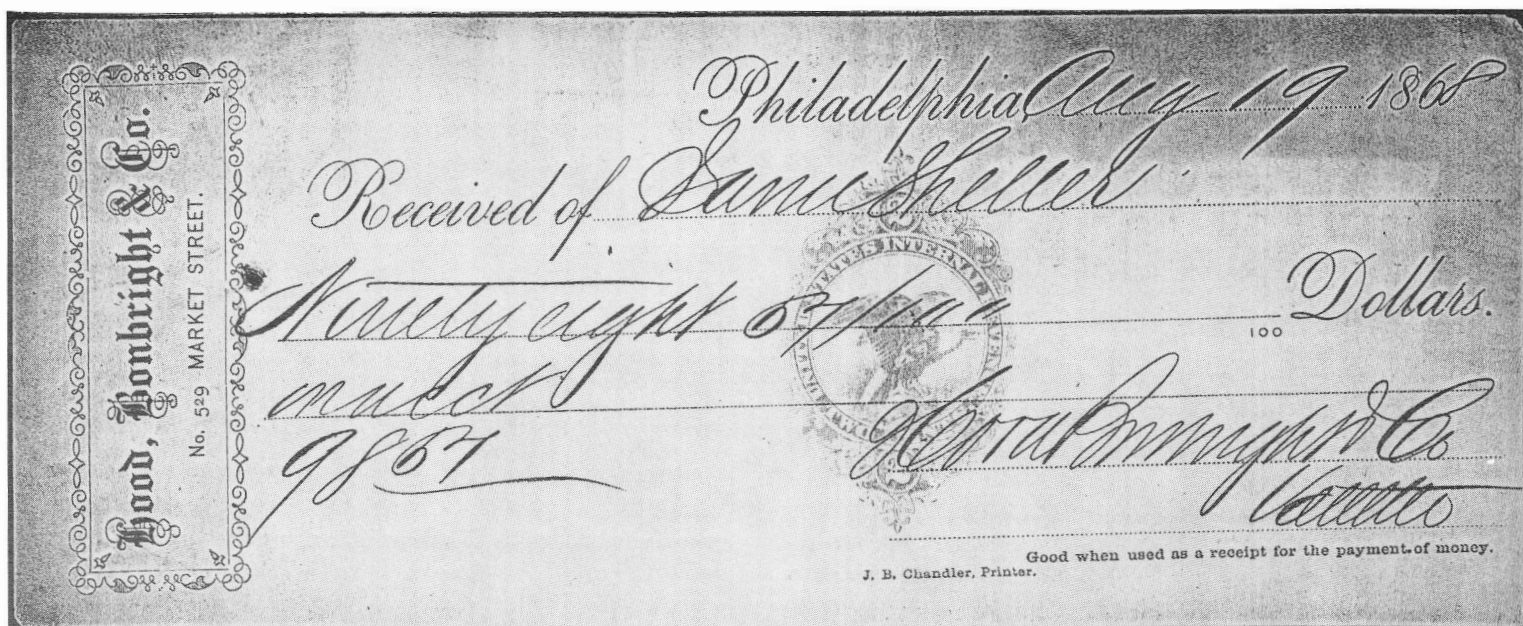 Hood, Bonbright & Co.
No. 529 MARKET STREET.
Philadelphia, Aug 19 1868
Received of Saml Sheller
Ninety eight 57/100
100 Dollars.
on acct
98 57
Hood Bonbright & Co
UNITED STATES INTERNAL REVENUE
Good when used as a receipt for the payment of money.
J. B. Chandler, Printer.